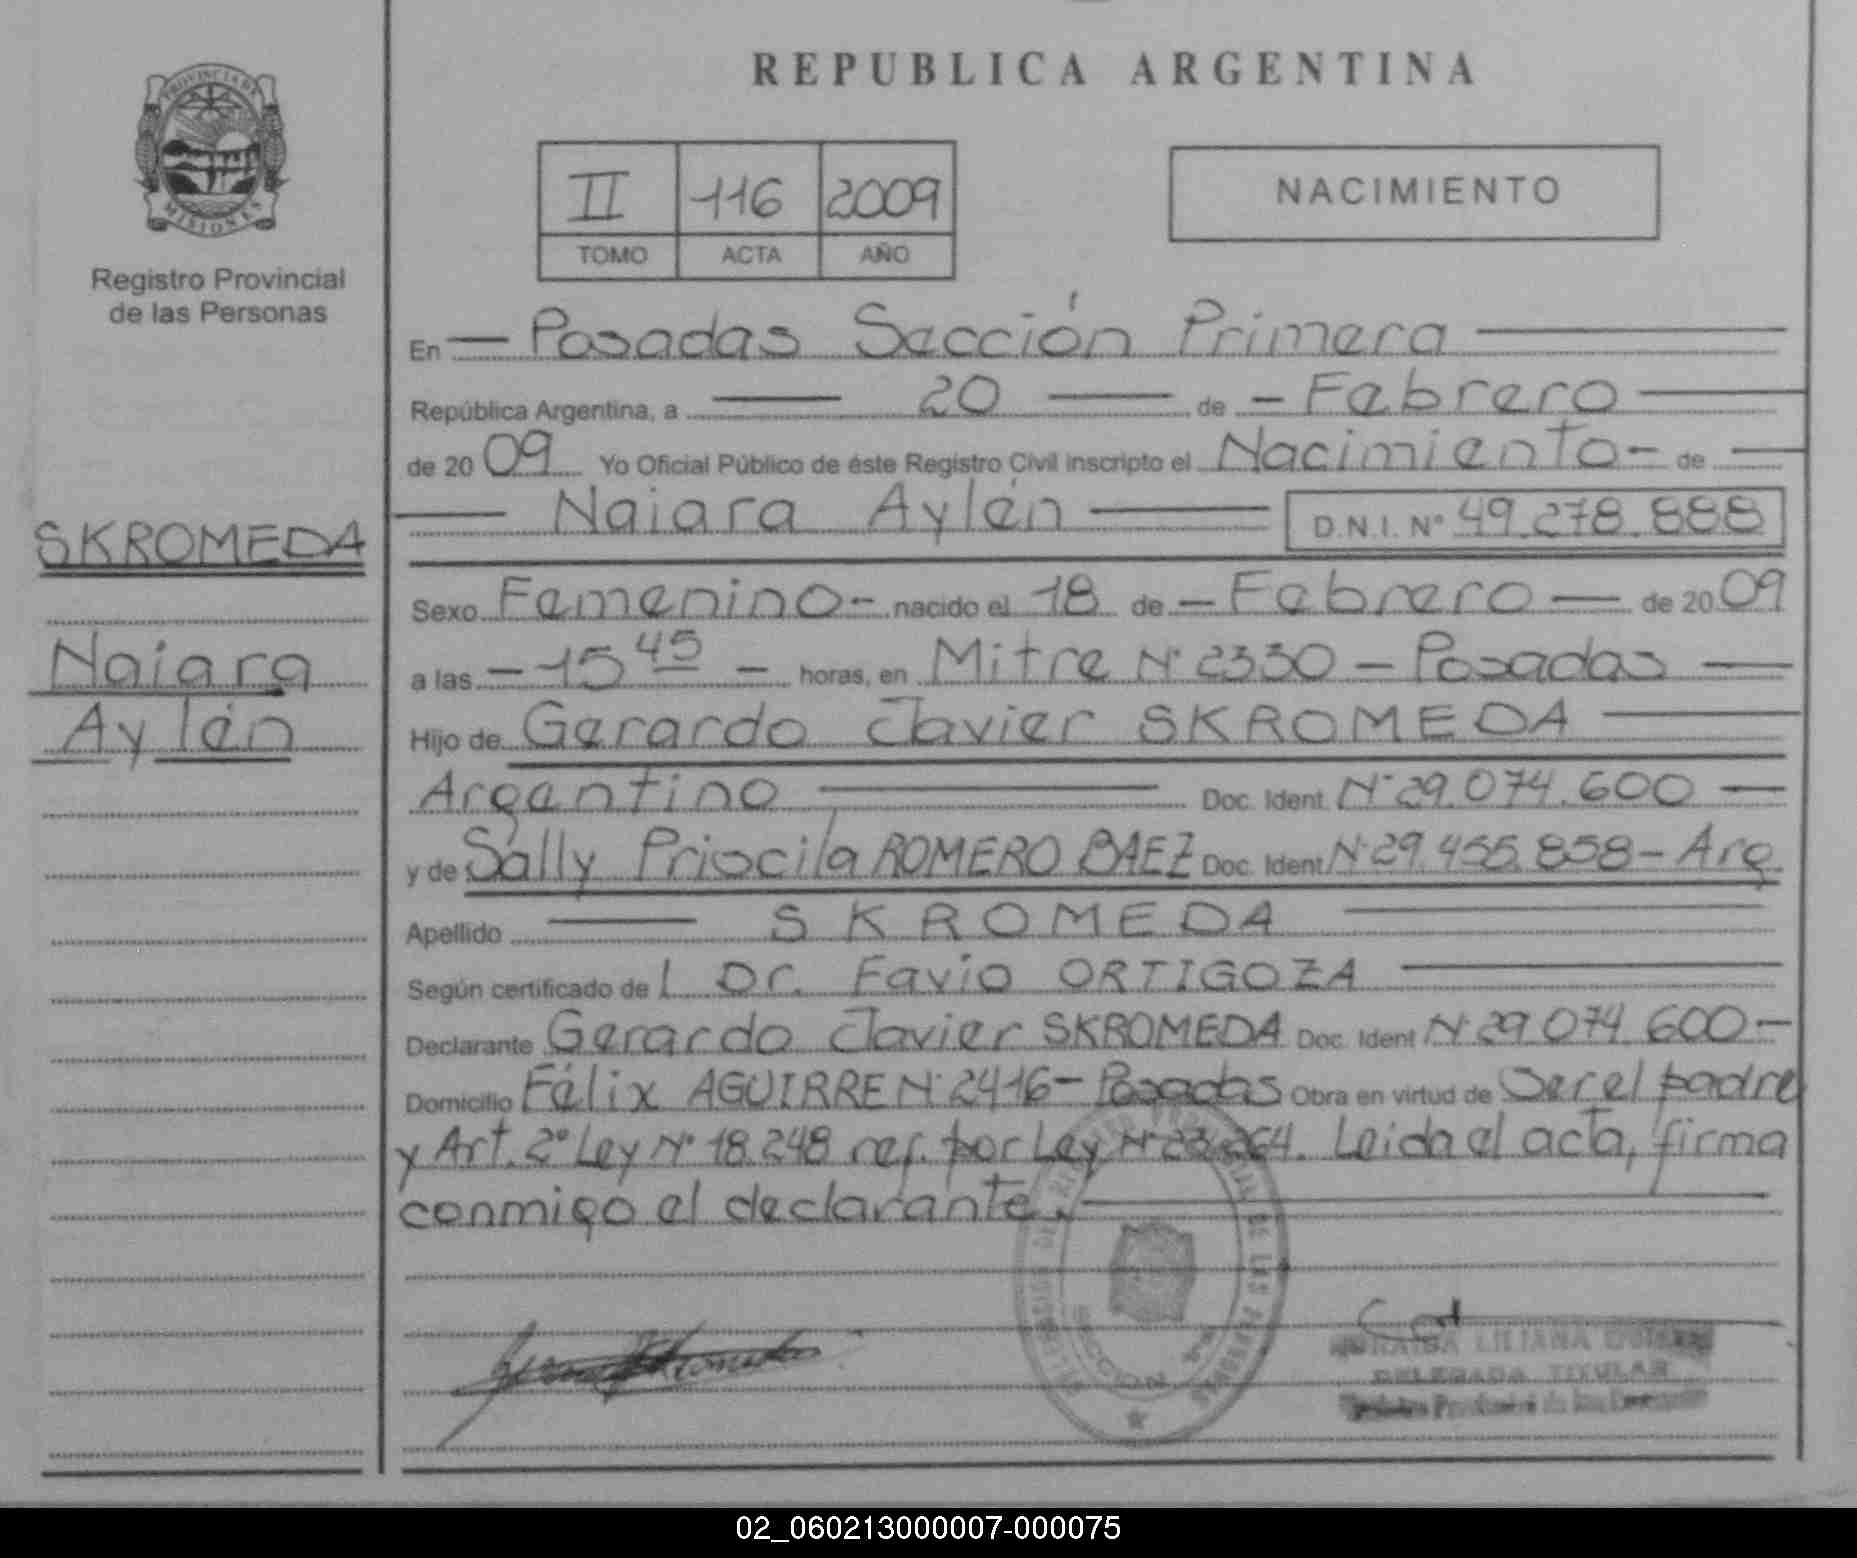 PROVINCIA DE
MISIONES
Registro Provincial
de las Personas
SKROMEDA
Naiara
Aylén
REPUBLICA ARGENTINA
II 116 2009
TOMO ACTA AÑO
NACIMIENTO
En — Posadas Sección Primera —
República Argentina, a — 20 — de — Febrero —
de 2009 Yo Oficial Público de éste Registro Civil inscripto el Nacimiento - de —
— Naiara Aylén — D.N.I. Nº 49.278.888
Sexo Femenino - nacido el 18 de — Febrero — de 2009
a las — 15 45 — horas, en Mitre Nº 2330 — Posadas —
Hijo de Gerardo Javier SKROMEDA —
Argentino — Doc. Ident. Nº 29.074.600 —
y de Sally Priscila ROMERO BAEZ Doc. Ident Nº 29.455.858 - Arg
Apellido — SKROMEDA —
Según certificado del Dr. Favio ORTIGOZA —
Declarante Gerardo Javier SKROMEDA Doc. Ident Nº 29.074.600 —
Domicilio Félix AGUIRRE Nº 2416 - Posadas Obra en virtud de Ser el padre
y Art. 2º Ley Nº 18.248 ref. por Ley Nº 23.264. Leida el acta, firma
conmigo el declarante. —
SECCION
LILIANA
DELEGADA TITULAR
02_060213000007-000075